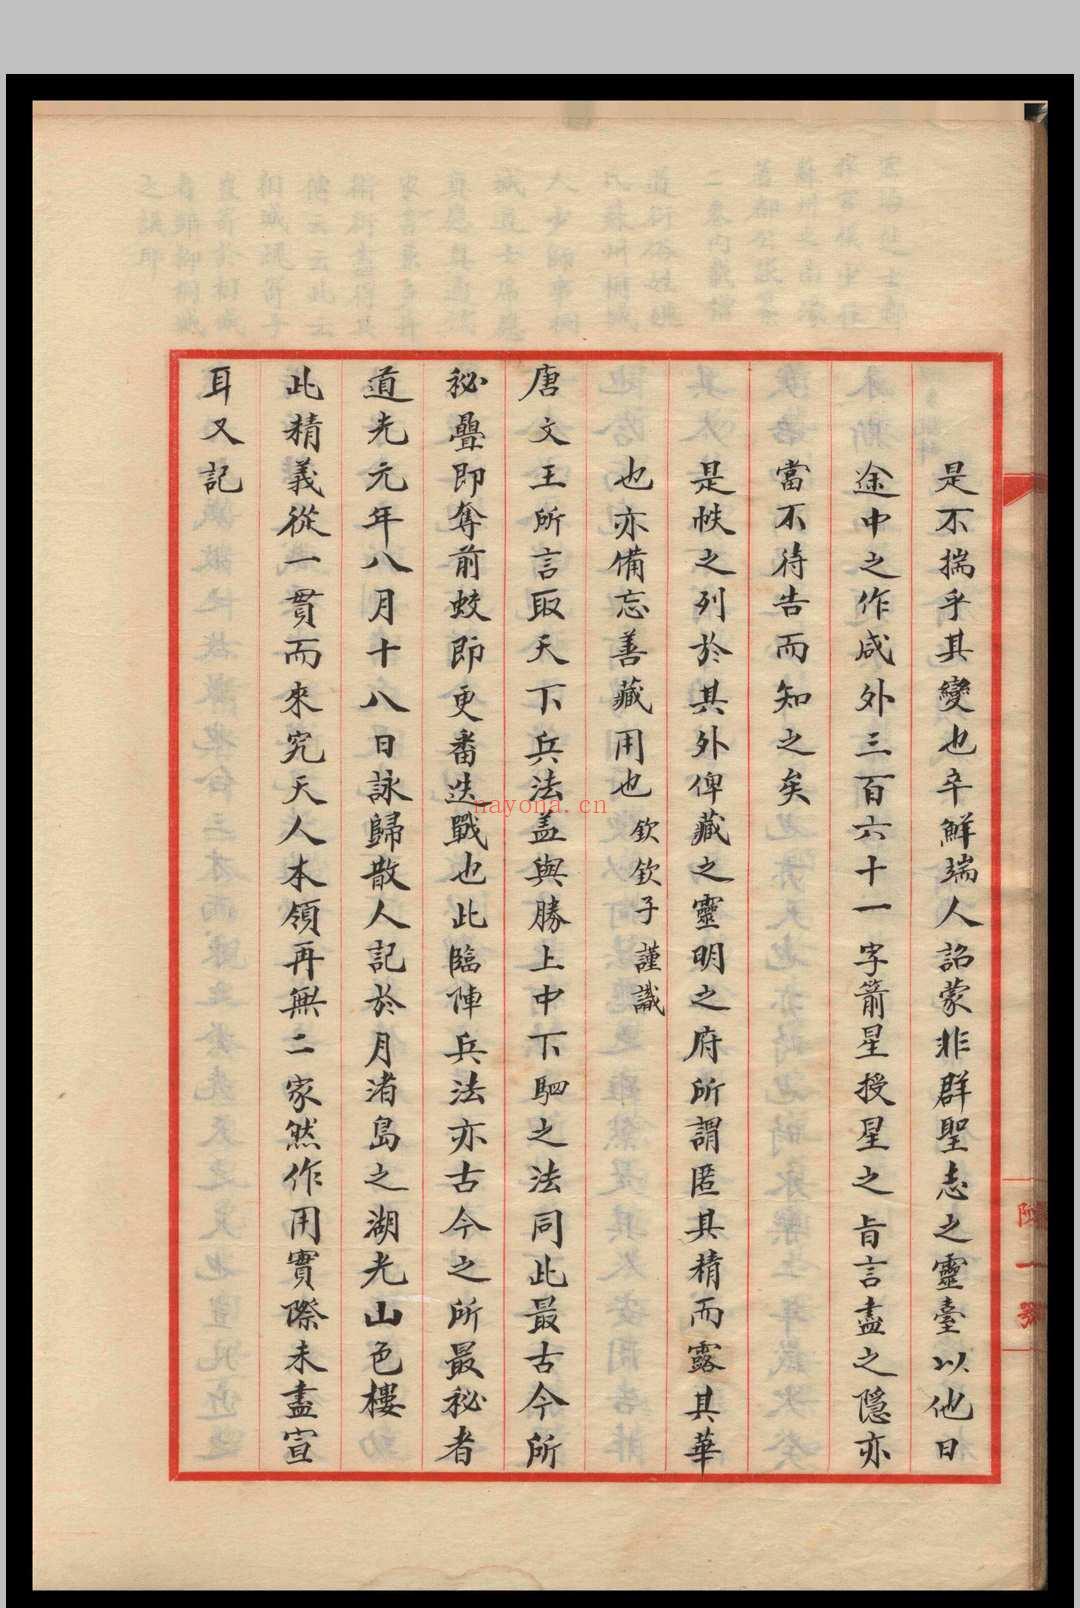 是不揣乎其變也卒鮮端人詔蒙非群聖志之靈臺以他日
途中之作咸外三百六十一字箭星授星之旨言盡之隱亦
當不待告而知之矣
是帙之列於其外俾藏之靈明之府所謂匿其精而露其華
也亦備忘善藏用也 欽欽子謹識
唐文王所言取天下兵法盖與勝上中下駟之法同此最古今所
秘疊即奪前蛟即更番迭戰也此臨陣兵法亦古今之所最秘者
道光元年八月十八日詠歸散人記於月渚島之湖光山色樓
此精義從一貫而來究天人本領再無二家然作用實際未盡宣
耳又記
nayona.cn